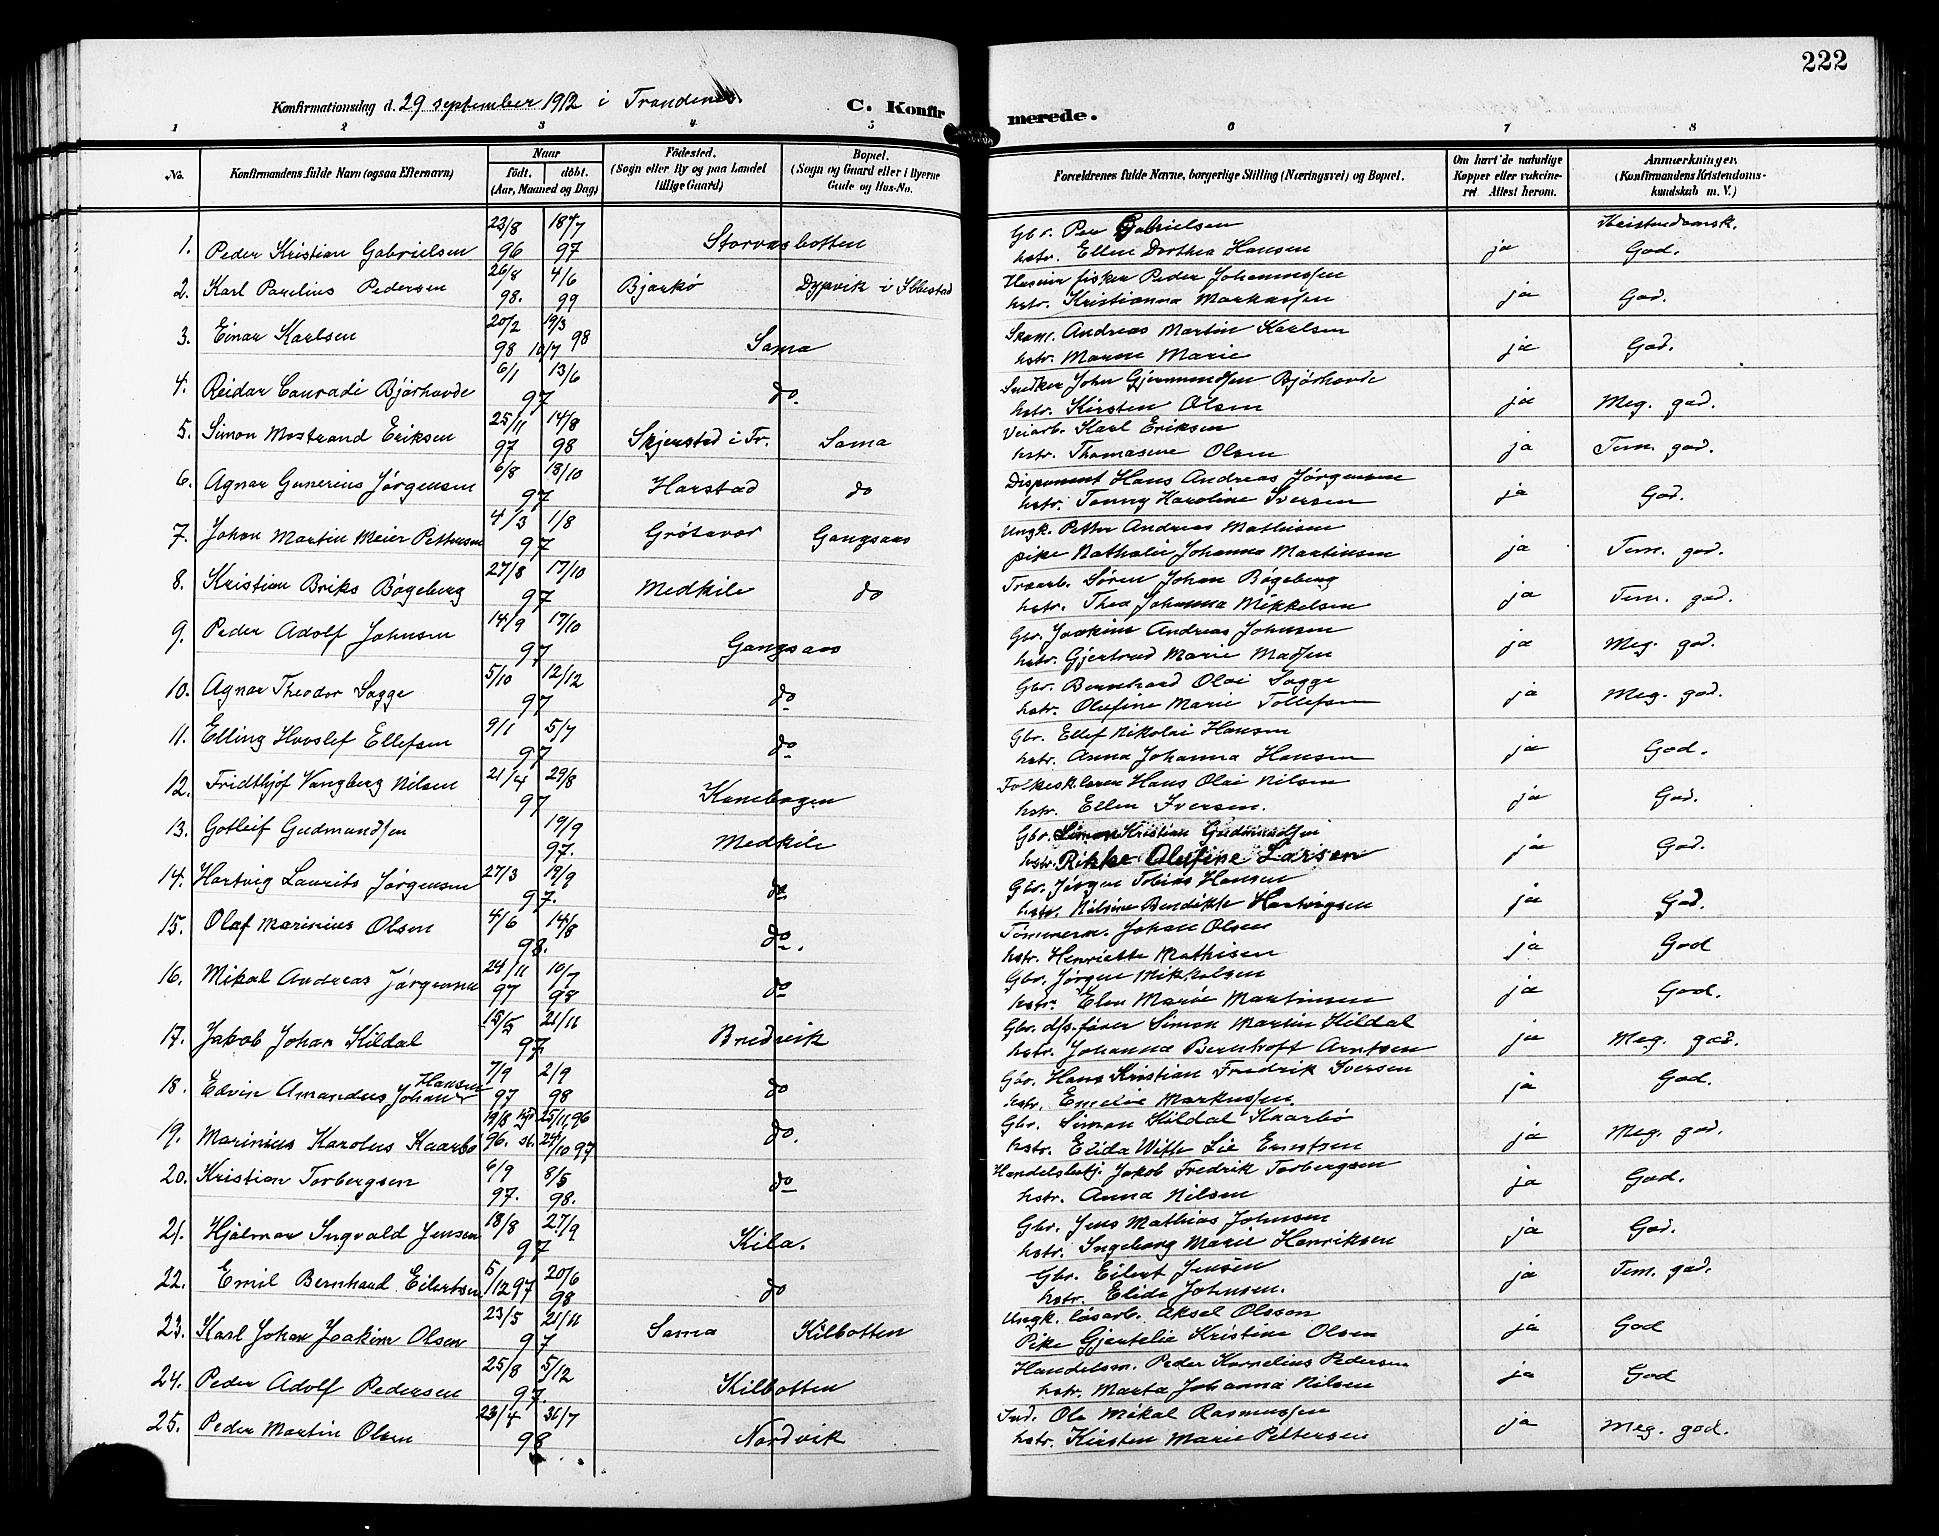 222
Konfirmationsdag d. 29 september 1912 i Trondenes.
C. Konfirmerede.
1 2 3 4 5 6 7 8
No. Konfirmandens fulde Navn (ogsaa Efternavn) Naar født. døbt. (Aar, Maaned og Dag) Födested. (Sogn eller By og paa Landet tillige Gaard) Bopæl. (Sogn og Gaard eller i Byerne Gade og Hus-No. Forældrenes fulde Navne, borgerlige Stilling (Næringsvei) og Bopæl. Om havt de naturlige Kopper eller vakcineret. Attest herom. Anmærkninger. (Konfirmandens Kristendomskundskab m. V.)
Kristendomsk.
1. Peder Kristian Gabrielsen 23/8 96 18/7 97 Storvasbotten Gbr. Per Gabrielsen hstr. Ellen Dorthea Hansen ja God.
2. Karl Parelius Pedersen 26/8 98. 4/6 99 Bjarkö Dyrvik i Ibbestad Huseier fisker Peder Johannessen hstr. Kristianna Markussen ja God.
3. Einar Karlsen 20/2 98 19/3 10/7 98 Sama Skom. Andreas Martin Karlsen hstr. Maren Marie ja God.
4. Reidar Conradi Bjørhovde 6/1 13/6 97 do. Snedker John Gjermundsen Bjørhovde hstr. Kirsten Olsen ja Meg. god.
5. Simon Mostrand Eriksen 25/11 97 14/8 98 Skjerstad i Tr. Sama Veiarb. Karl Eriksen hstr. Thomasine Olsen ja Tem. god.
6. Agnar Gunerius Jørgensen 6/8 18/10 97 Harstad do Disponent Hans Andreas Jørgensen hstr. Tonny Karoline Iversen ja God.
7. Johan Martin Meier Pettersen 4/3 1/8 97 Grötavar Gangsaas Ungk. Petter Andreas Mathisen pike Nathalie Johanna Martinsen ja Tem. god.
8. Kristian Briks Bøgeberg 27/8 17/10 97 Medkile do Træarb. Søren Johan Bøgeberg hstr. Thea Johanna Mikkelsen ja Tem. god.
9. Peder Adolf Johnsen 14/9 17/10 97 Gangsaas Gbr. Joakim Andreas Johnsen hstr. Gjertrud Marie Madsen ja Meg. god.
10. Agnar Theodor Sagge 5/10 12/12 97 do Gbr. Bernhard Olai Sagge hstr. Olufine Marie Tollefsen ja Meg. god.
11. Elling Hovslef Ellefsen 9/1 5/7 97 do Gbr. Ellef Nikolai Hansen hstr. Anna Johanna Hansen ja God.
12. Fridthjof Vangberg Nilsen 21/4 29/8 97 Kanebogen Folkesk.lærer Hans Olai Nilsen hstr. Ellen Iversen. ja God.
13. Gotleif Gudmundsen 19/9 97. Medkile Gbr. Simon Kristian Gudmundsen hstr. Rikke Olufine Larsen ja God.
14. Hartvig Laurits Jørgensen 27/3 19/9 97. do Gbr. Jørgen Tobias Hansen hstr. Nilsine Bendikte Hartvigsen ja God.
15. Olaf Marinius Olsen 4/6 14/8 98. do. Tømmerm. Johan Olsen hstr. Henriette Mathisen ja God
16. Mikal Andreas Jørgensen 24/11 97 10/7 98 do Gbr. Jørgen Mikkelsen hstr. Elen Marie Martinsen ja God.
17. Jakob Johan Kildal 15/5 21/11 97 Bredvik Gbr. d/s. fører Simon Martin Kildal hstr. Johanna Bernhoft Arntsen ja Meg. god.
18. Edvin Amandus Johan Hansen 7/9 97 2/9 98 do Gbr. Hans Kristian Fredrik Iversen hstr. Emelie Markussen. ja God.
19. Marinius Karolus Kaarbø 19/8 96. 25/11 96 st. 24/10 97 do. Gbr. Simon Kildal Kaarbø hstr. Elida Witte Lie Erentsen ja Meg. god.
20. Kristian Torbergsen 6/9 97. 8/5 98. do Handelsbetj. Jakob Fredrik Torbergsen hstr. Anna Nilsen ja God.
21. Hjalmar Ingvald Jensen 18/8 27/9 97 Kila. Gbr. Jens Mathias Johnsen hstr. Ingeborg Marie Henriksen ja God.
22. Emil Bernhard Eilertsen 5/12 97 20/6 98 do Gbr. Eilert Jensen hstr. Elida Johnsen. ja Tem. god.
23. Karl Johan Joakim Olsen 23/5 21/11 97 Sama Kilbotten Ungk. løsarb. Aksel Olsson Pike Gjertelie Kristine Olsen ja God
24. Peder Adolf Pedersen 25/8 5/12 97. Kilbotten Handelsm. Peder Kornelius Pedersen hstr. Marta Johanna Nilsen ja God
25. Peder Martin Olsen 23/4 31/7 98 Nordvik Ind. Ole Mikal Rasmussen hstr. Kirsten Marie Pettersen ja Meg. god.